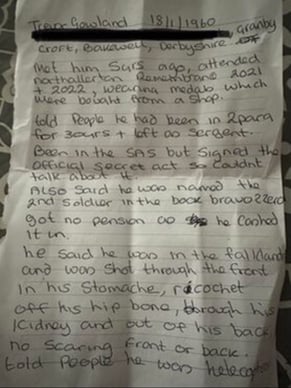 Trevor Gowland 18/1/1960
Granby
Croft, Bakewell, Derbyshire
Met him 5yrs ago, attended
northallerton Remembrance 2021
+ 2022, wearing medals which
were bought from a shop.
told People he had been in 2para
for 30urs + left as sergent.
Been in the SAS but signed the
official secret act so couldnt
talk about it.
Also said he was named the
2nd soldier in the book bravo2zero
got no pension as he cashed
it in.
he said he was in the falklands
and was shot through the front
in his stomache, ricochet
off his hip bone, through his
kidney and out of his back
no scaring front or back.
told People he was